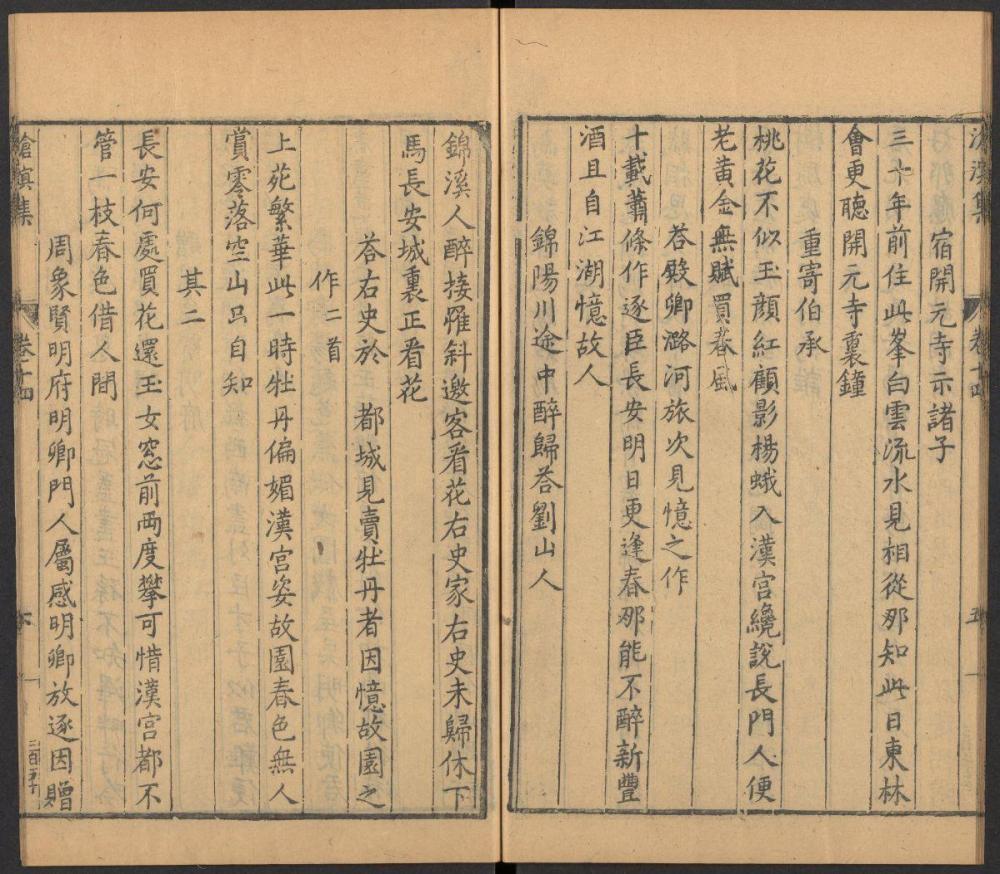 滄溟集 卷十四 五
宿開元寺示諸子
三十年前住此峯白雲流水見相從那知此日東林
會更聽開元寺裏鐘
重寄伯承
桃花不似玉顏紅顧影楊蛾入漢宮纔說長門人便
老黃金無賦買春風
荅殿卿潞河旅次見憶之作
十載蕭條作逐臣長安明日更逢春那能不醉新豐
酒且自江湖憶故人
錦陽川途中醉歸荅劉山人
錦溪人醉接䍦斜邀客看花右史家右史未歸休下
馬長安城裏正看花
荅右史於 都城見賣牡丹者因憶故園之
作二首
上苑繁華此一時牡丹偏媚漢宮姿故園春色無人
賞零落空山只自知
其二
長安何處買花還玉女窓前両度攀可惜漢宮都不
管一枝春色借人間
周象賢明府明卿門人屬感明卿放逐因贈
滄溟集 卷十四 六